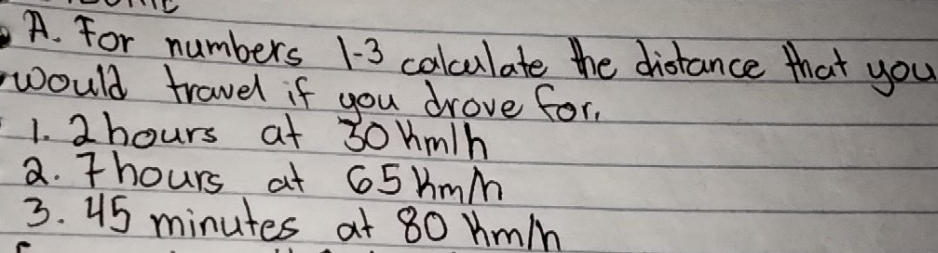 A. For numbers 1-3 calculate the distance that you
would travel if you drove for.
1. 2 hours at 30 km/h
2. 7 hours at 65 km/h
3. 45 minutes at 80 km/h